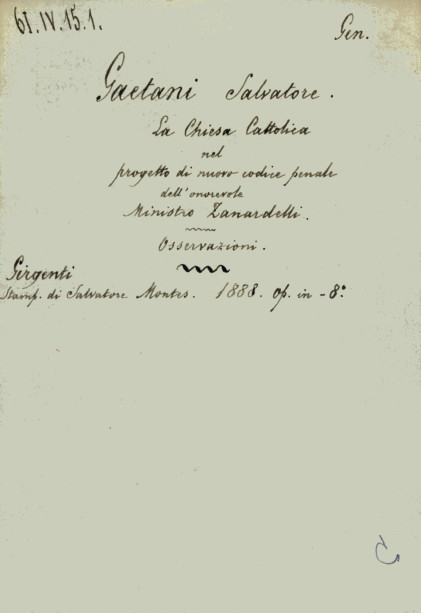 61.IV.15.1.
Gen.
Gaetani Salvatore.
La Chiesa Cattolica
nel
progetto di nuovo codice penale
dell'onorevole
Ministro Zanardelli.
Osservazioni.
Girgenti
Stamp. di Salvatore Montes. 1888. Op. in-8.°
C